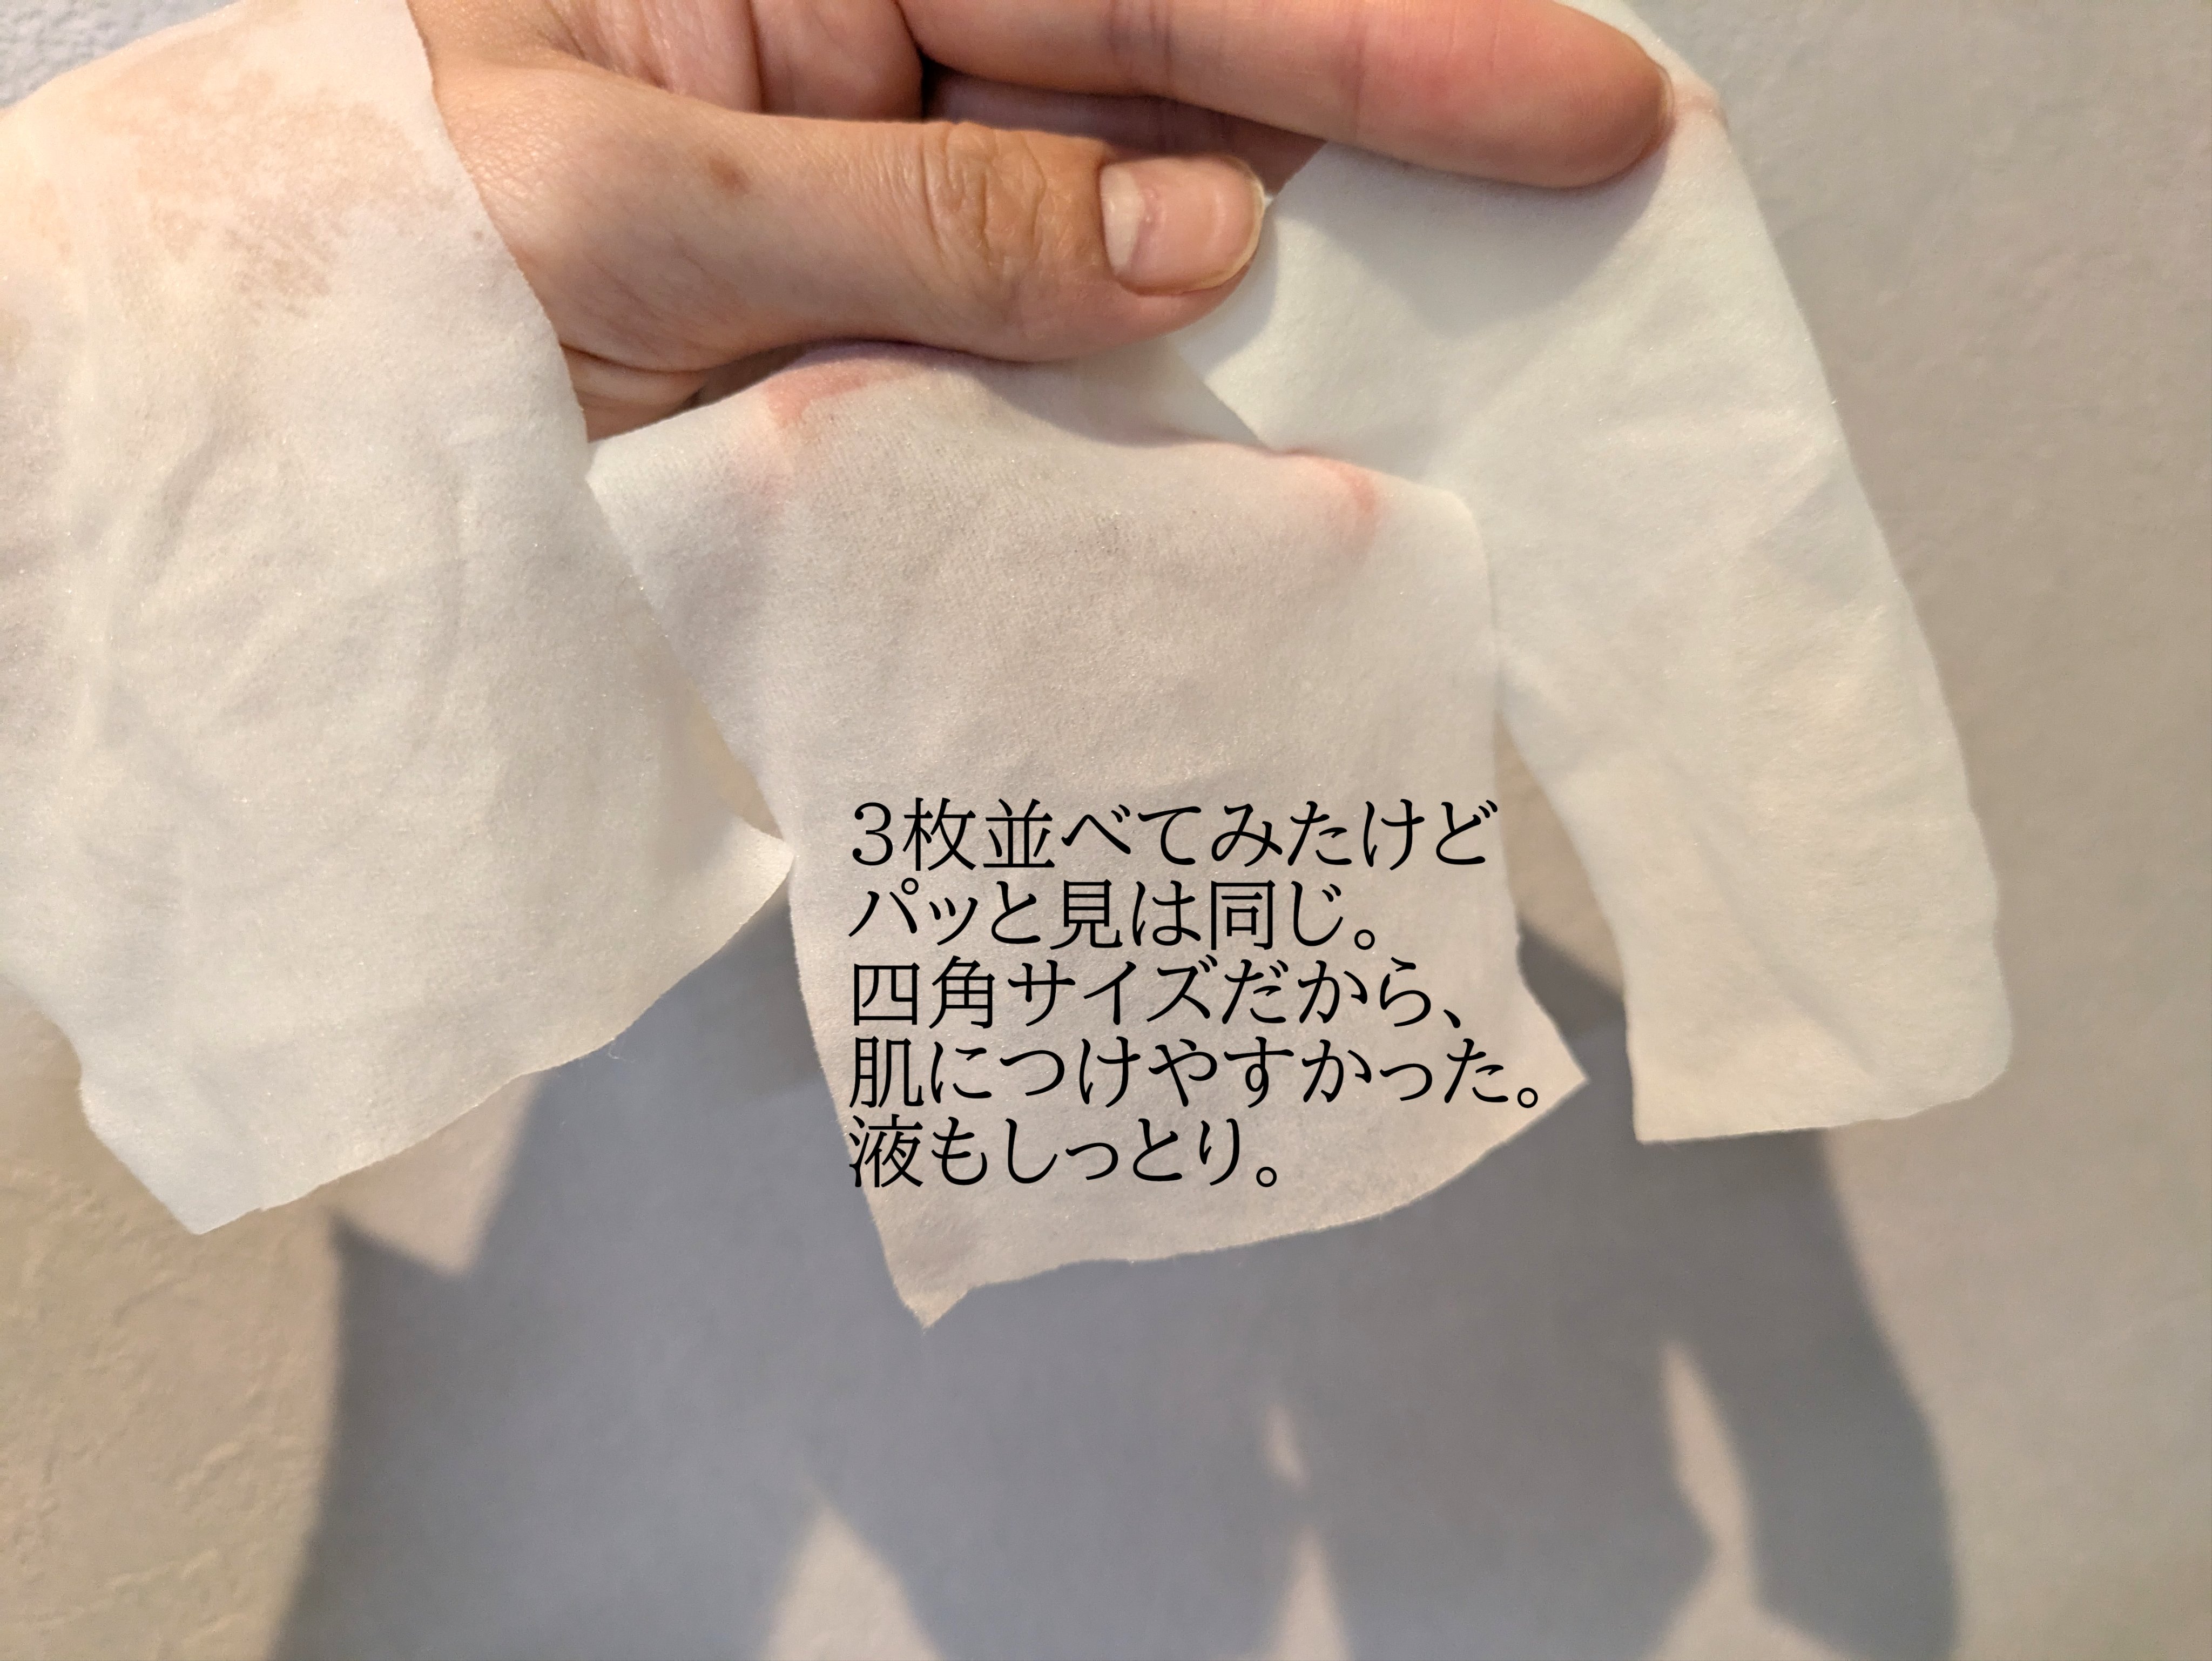 3枚並べてみたけど
パッと見は同じ。
四角サイズだから、
肌につけやすかった。
液もしっとり。